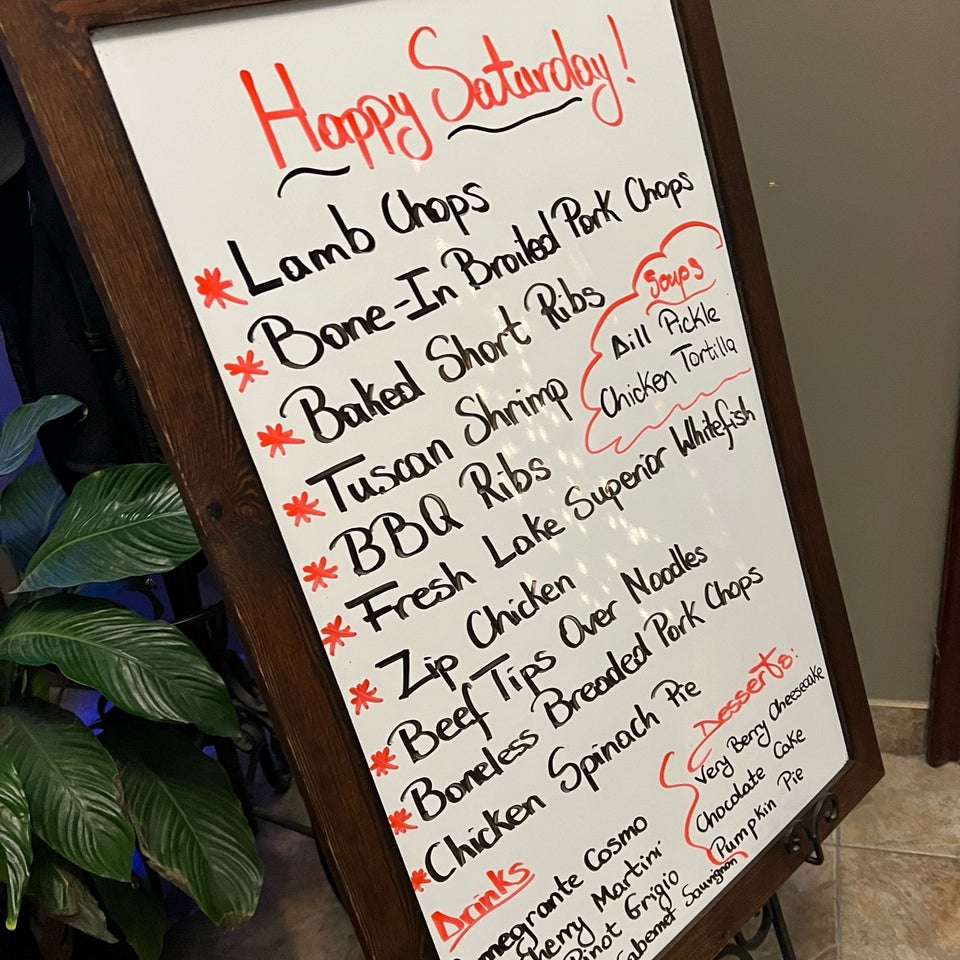 Happy Saturday!
* Lamb Chops
* Bone-In Broiled Pork Chops
* Baked Short Ribs
* Tuscan Shrimp
* BBQ Ribs
* Fresh Lake Superior Whitefish
* Zip Chicken
* Beef Tips Over Noodles
* Boneless Breaded Pork Chops
* Chicken Spinach Pie
Soups
Dill Pickle
Chicken Tortilla
Desserts:
Very Berry Cheesecake
Chocolate Cake
Pumpkin Pie
Drinks
Cosmo
Martini
Pinot Grigio
Cabernet Sauvignon